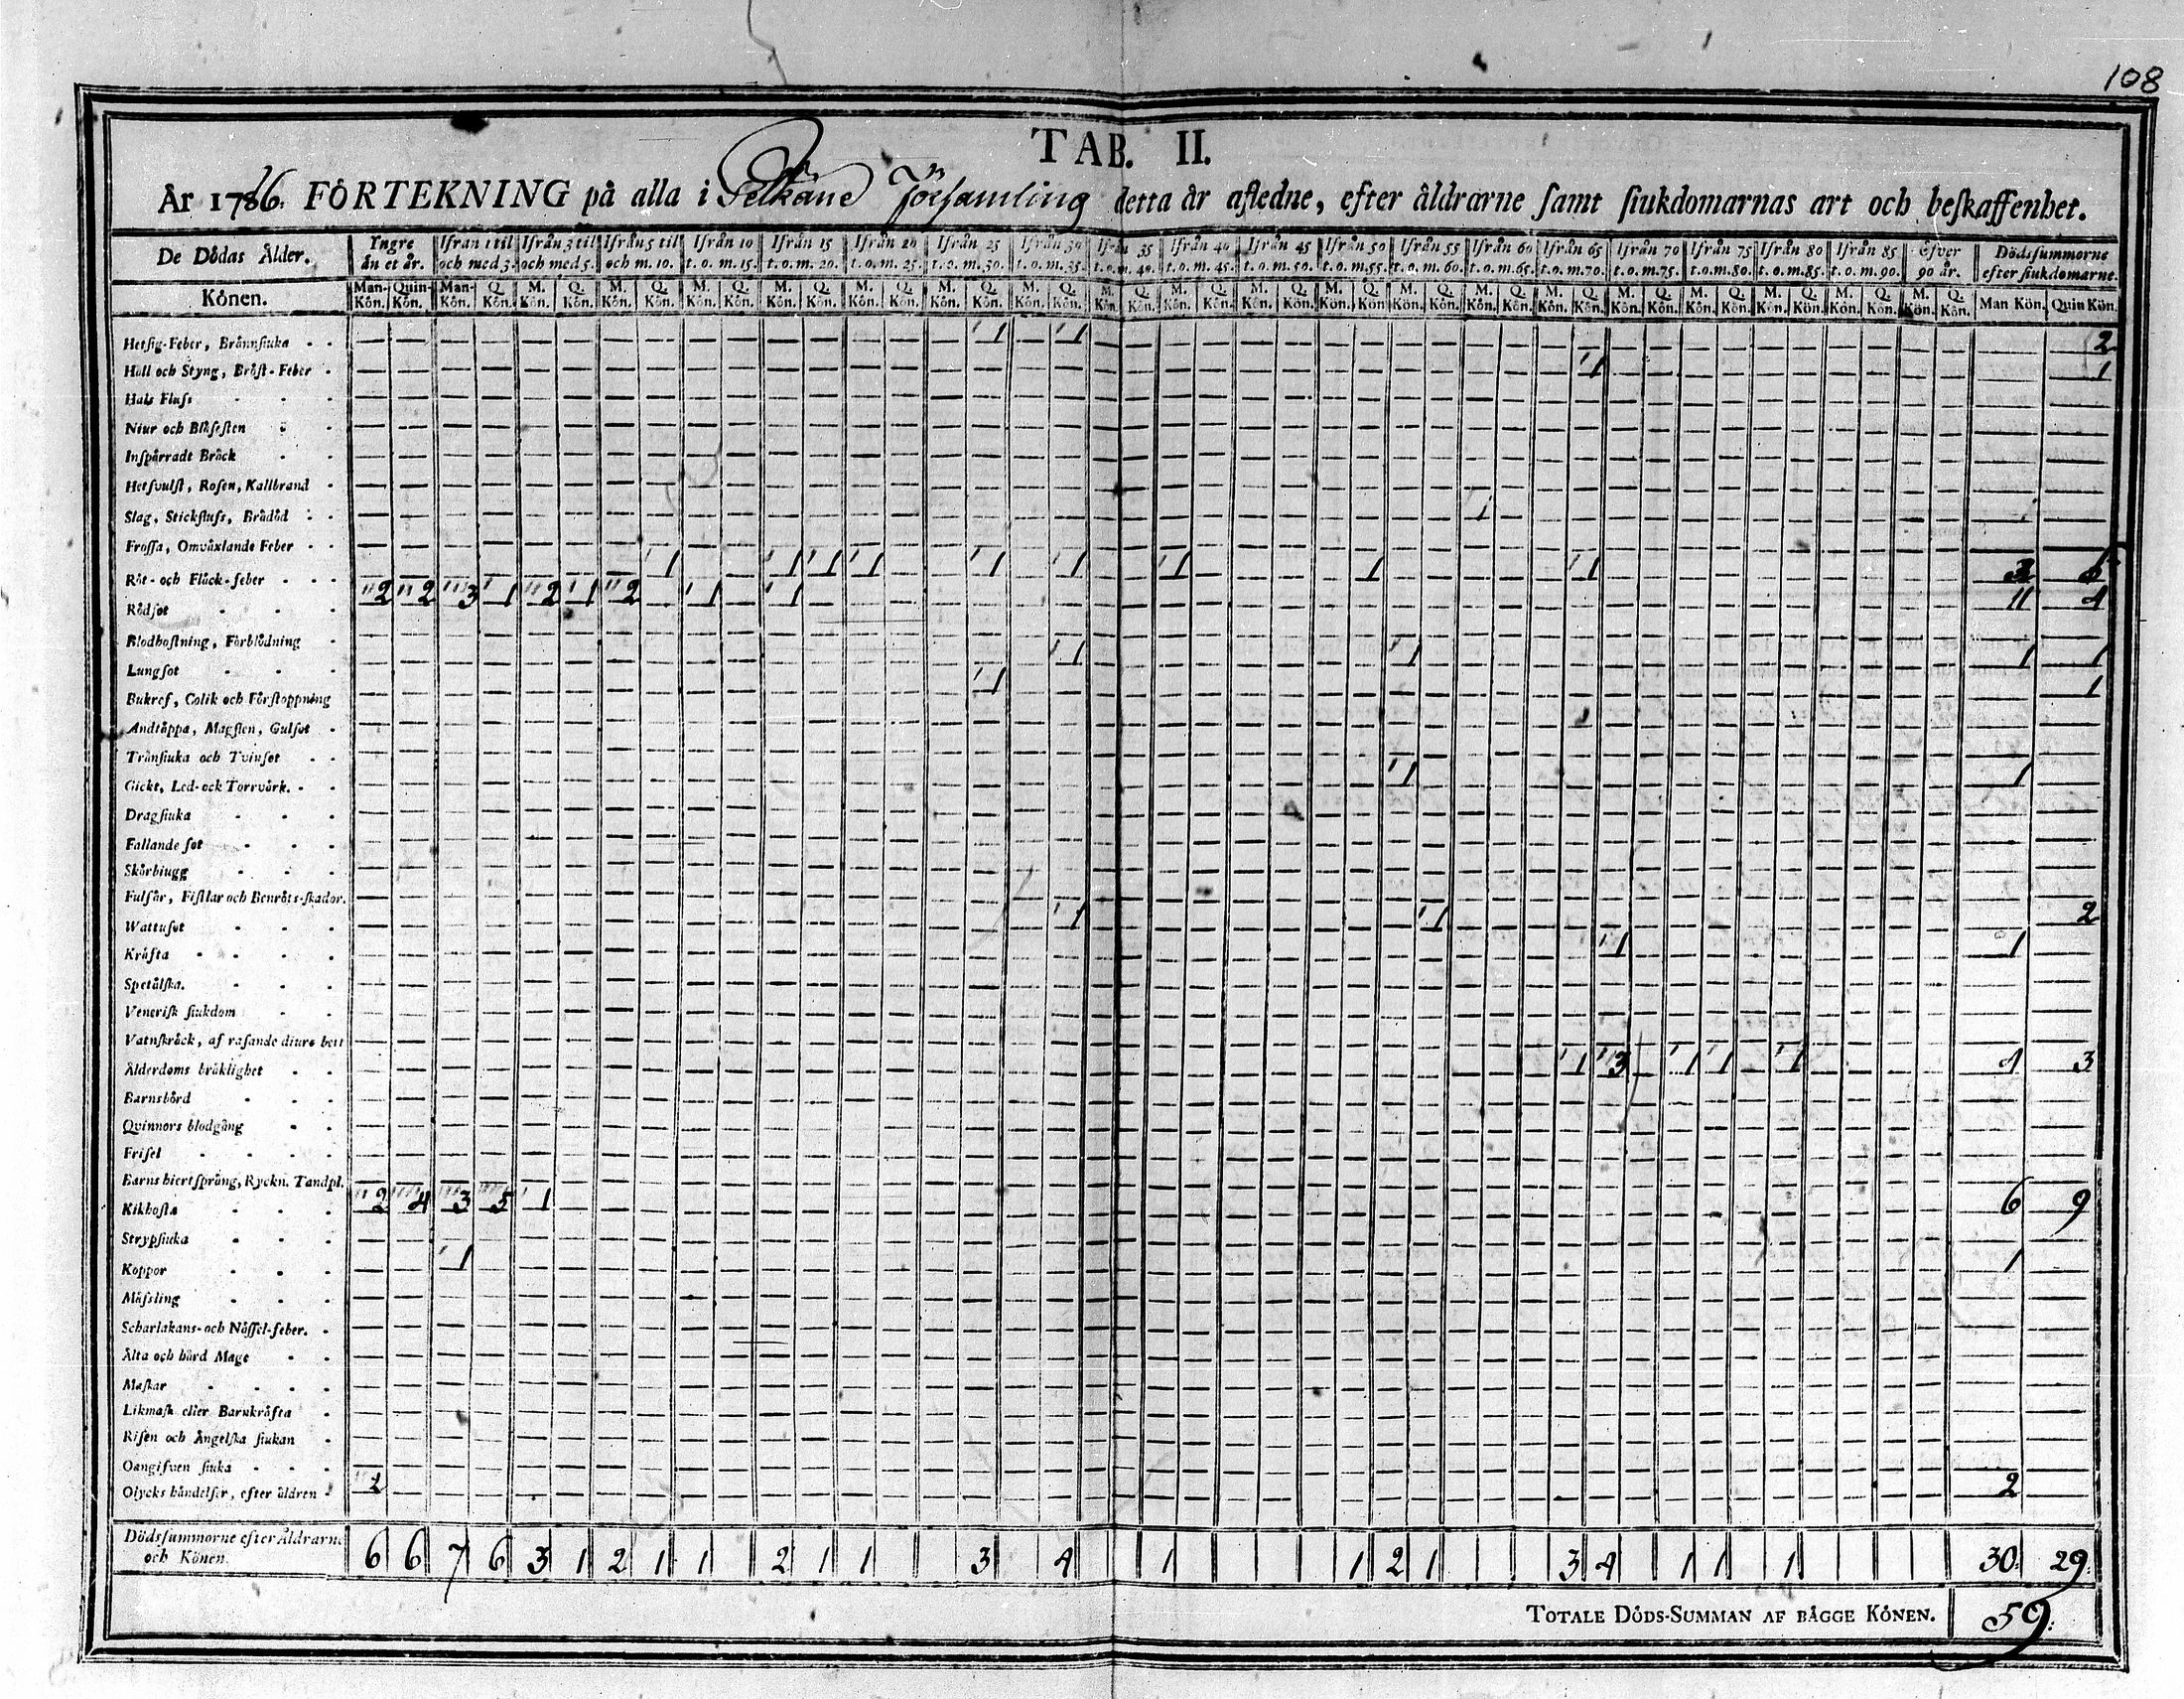 108
TAB. II.
År 1786. FÖRTEKNING på alla i Pelkäne Församling detta år afledne, efter åldrarne samt siukdomarnas art och beskaffenhet.
De Dödas Ålder. Yngre än et år. Ifrån 1 til och med 3. Ifrån 3 til och med 5. Ifrån 5 til och m. 10. Ifrån 10 t.o.m. 15. Ifrån 15 t.o.m. 20. Ifrån 20 t.o.m. 25. Ifrån 25 t.o.m. 30. Ifrån 30 t.o.m. 35. Ifrån 35 t.o.m. 40. Ifrån 40 t.o.m. 45. Ifrån 45 t.o.m. 50. Ifrån 50 t.o.m. 55. Ifrån 55 t.o.m. 60. Ifrån 60 t.o.m. 65. Ifrån 65 t.o.m. 70. Ifrån 70 t.o.m. 75. Ifrån 75 t.o.m. 80. Ifrån 80 t.o.m. 85. Ifrån 85 t.o.m. 90. öfver 90 år. Dödssummorne efter siukdomarne.
Könen. Man-Kön. Quin-Kön. Man-Kön. Q. Kön. M. Kön. Q. Kön. M. Kön. Q. Kön. M. Kön. Q. Kön. M. Kön. Q. Kön. M. Kön. Q. Kön. M. Kön. Q. Kön. M. Kön. Q. Kön. M. Kön. Q. Kön. M. Kön. Q. Kön. M. Kön. Q. Kön. M. Kön. Q. Kön. M. Kön. Q. Kön. M. Kön. Q. Kön. M. Kön. Q. Kön. M. Kön. Q. Kön. M. Kön. Q. Kön. M. Kön. Q. Kön. M. Kön. Q. Kön. M. Kön. Q. Kön. Man Kön. Quin Kön.
Hetsig-Feber, Brännsiuka 1 1 2
Håll och Styng, Bröst-Feber 1 1
Hals Fluss
Niur och Blåsesten
Inspärradt Bråck
Hetsvulst, Rosen, Kallbrand
Slag, Stickfluss, Brådöd
Frossa, Omväxlande Feber
Röt- och Fläck-feber 1 1 1 1 1 1 1 1 1
Rödsot 2 2 3 1 2 1 2 1 1 11 4
Blodhostning, Förblödning
Lungsot 1 1 1 1
Bukref, Colik och Förstoppning 1 1
Andtäppa, Magsten, Gulsot
Trånsiuka och Tvinsot
Gickt, Led- och Torrvärk. 1 1
Dragsiuka
Fallande sot
Skörbiugg
Fulsår, Fistlar och Benröts-skador.
Wattusot 1 1 2
Kräfta 1 1
Spetälska.
Venerisk siukdom
Vatnskräck, af rasande diurs bett
Ålderdoms bräklighet 1 3 1 1 1 4 3
Barnsbörd
Qvinnors blodgång
Frisel
Barns hiertsprång, Ryckn. Tandpl.
Kikhosta 2 4 3 5 1 6 9
Strypsiuka
Koppor 1 1
Mässling
Scharlakans- och Nässel-feber.
Älta och hård Mage
Maskar
Likmask eller Barnkräfta
Risen och Ängelska siukan
Oangifven siuka
Olycks händelser, efter äldren 2 2
Dödssummorne efter Åldrarne och Könen. 6 6 7 6 3 1 2 1 1 2 1 1 3 4 1 1 2 1 3 4 1 1 1 30. 29.
TOTALE DÖDS-SUMMAN AF BÅGGE KÖNEN. 59.